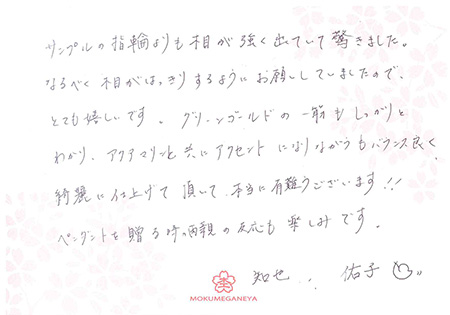 サンプルの指輪よりも相が強く出ていて驚きました。
なるべく相がはっきりするようにお願いしていましたので、
とても嬉しいです。グリーンゴールドの一筋もしっかりと
わかり、アクアマリンと共にアクセントになりながらもバランス良く
綺麗に仕上げて頂いて、本当に有難うございます!!
ペンダントを贈る時の両親の反応も楽しみです。
知也、佑子
MOKUMEGANEYA